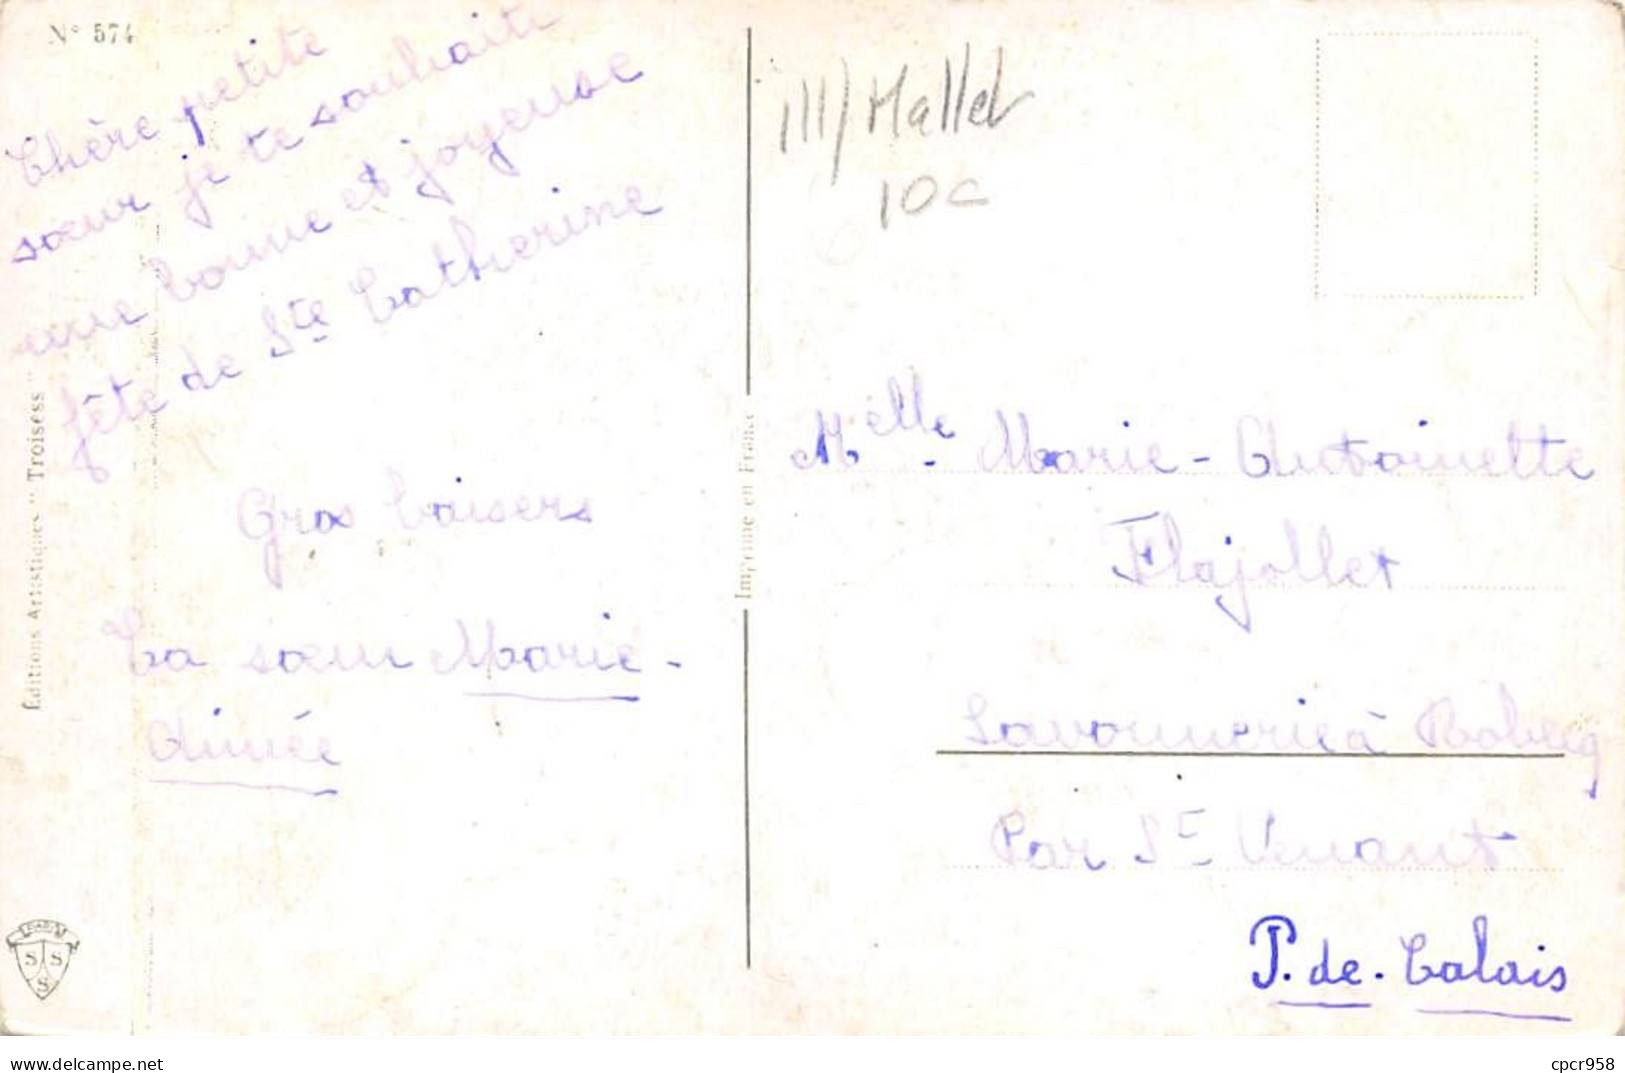 N° 574
Chère petite
sœur je te souhaite
une bonne et joyeuse
fête de Ste Catherine
Gros baisers
Ta sœur Marie-
Aimée
Éditions Artistiques "Troisess"
PARIS
S S
S
Imprimé en France
III/ Mallet
10c
Melle. Marie-Antoinette
Flajollet
Savonnerie à Robecq
Par St Venant
P. de. Calais
www.delcampe.net
cpcr958